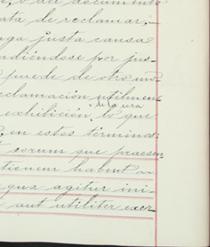 o del documento
ata de reclamar.-
aga justa causa
ndiéndose por jus-
puede de otro mo
eclamación utilmen
exhibición, lo que
, en estos términos
rorum sue praesen
tienem habuit
qua agitur ini-
aut utiliter exer